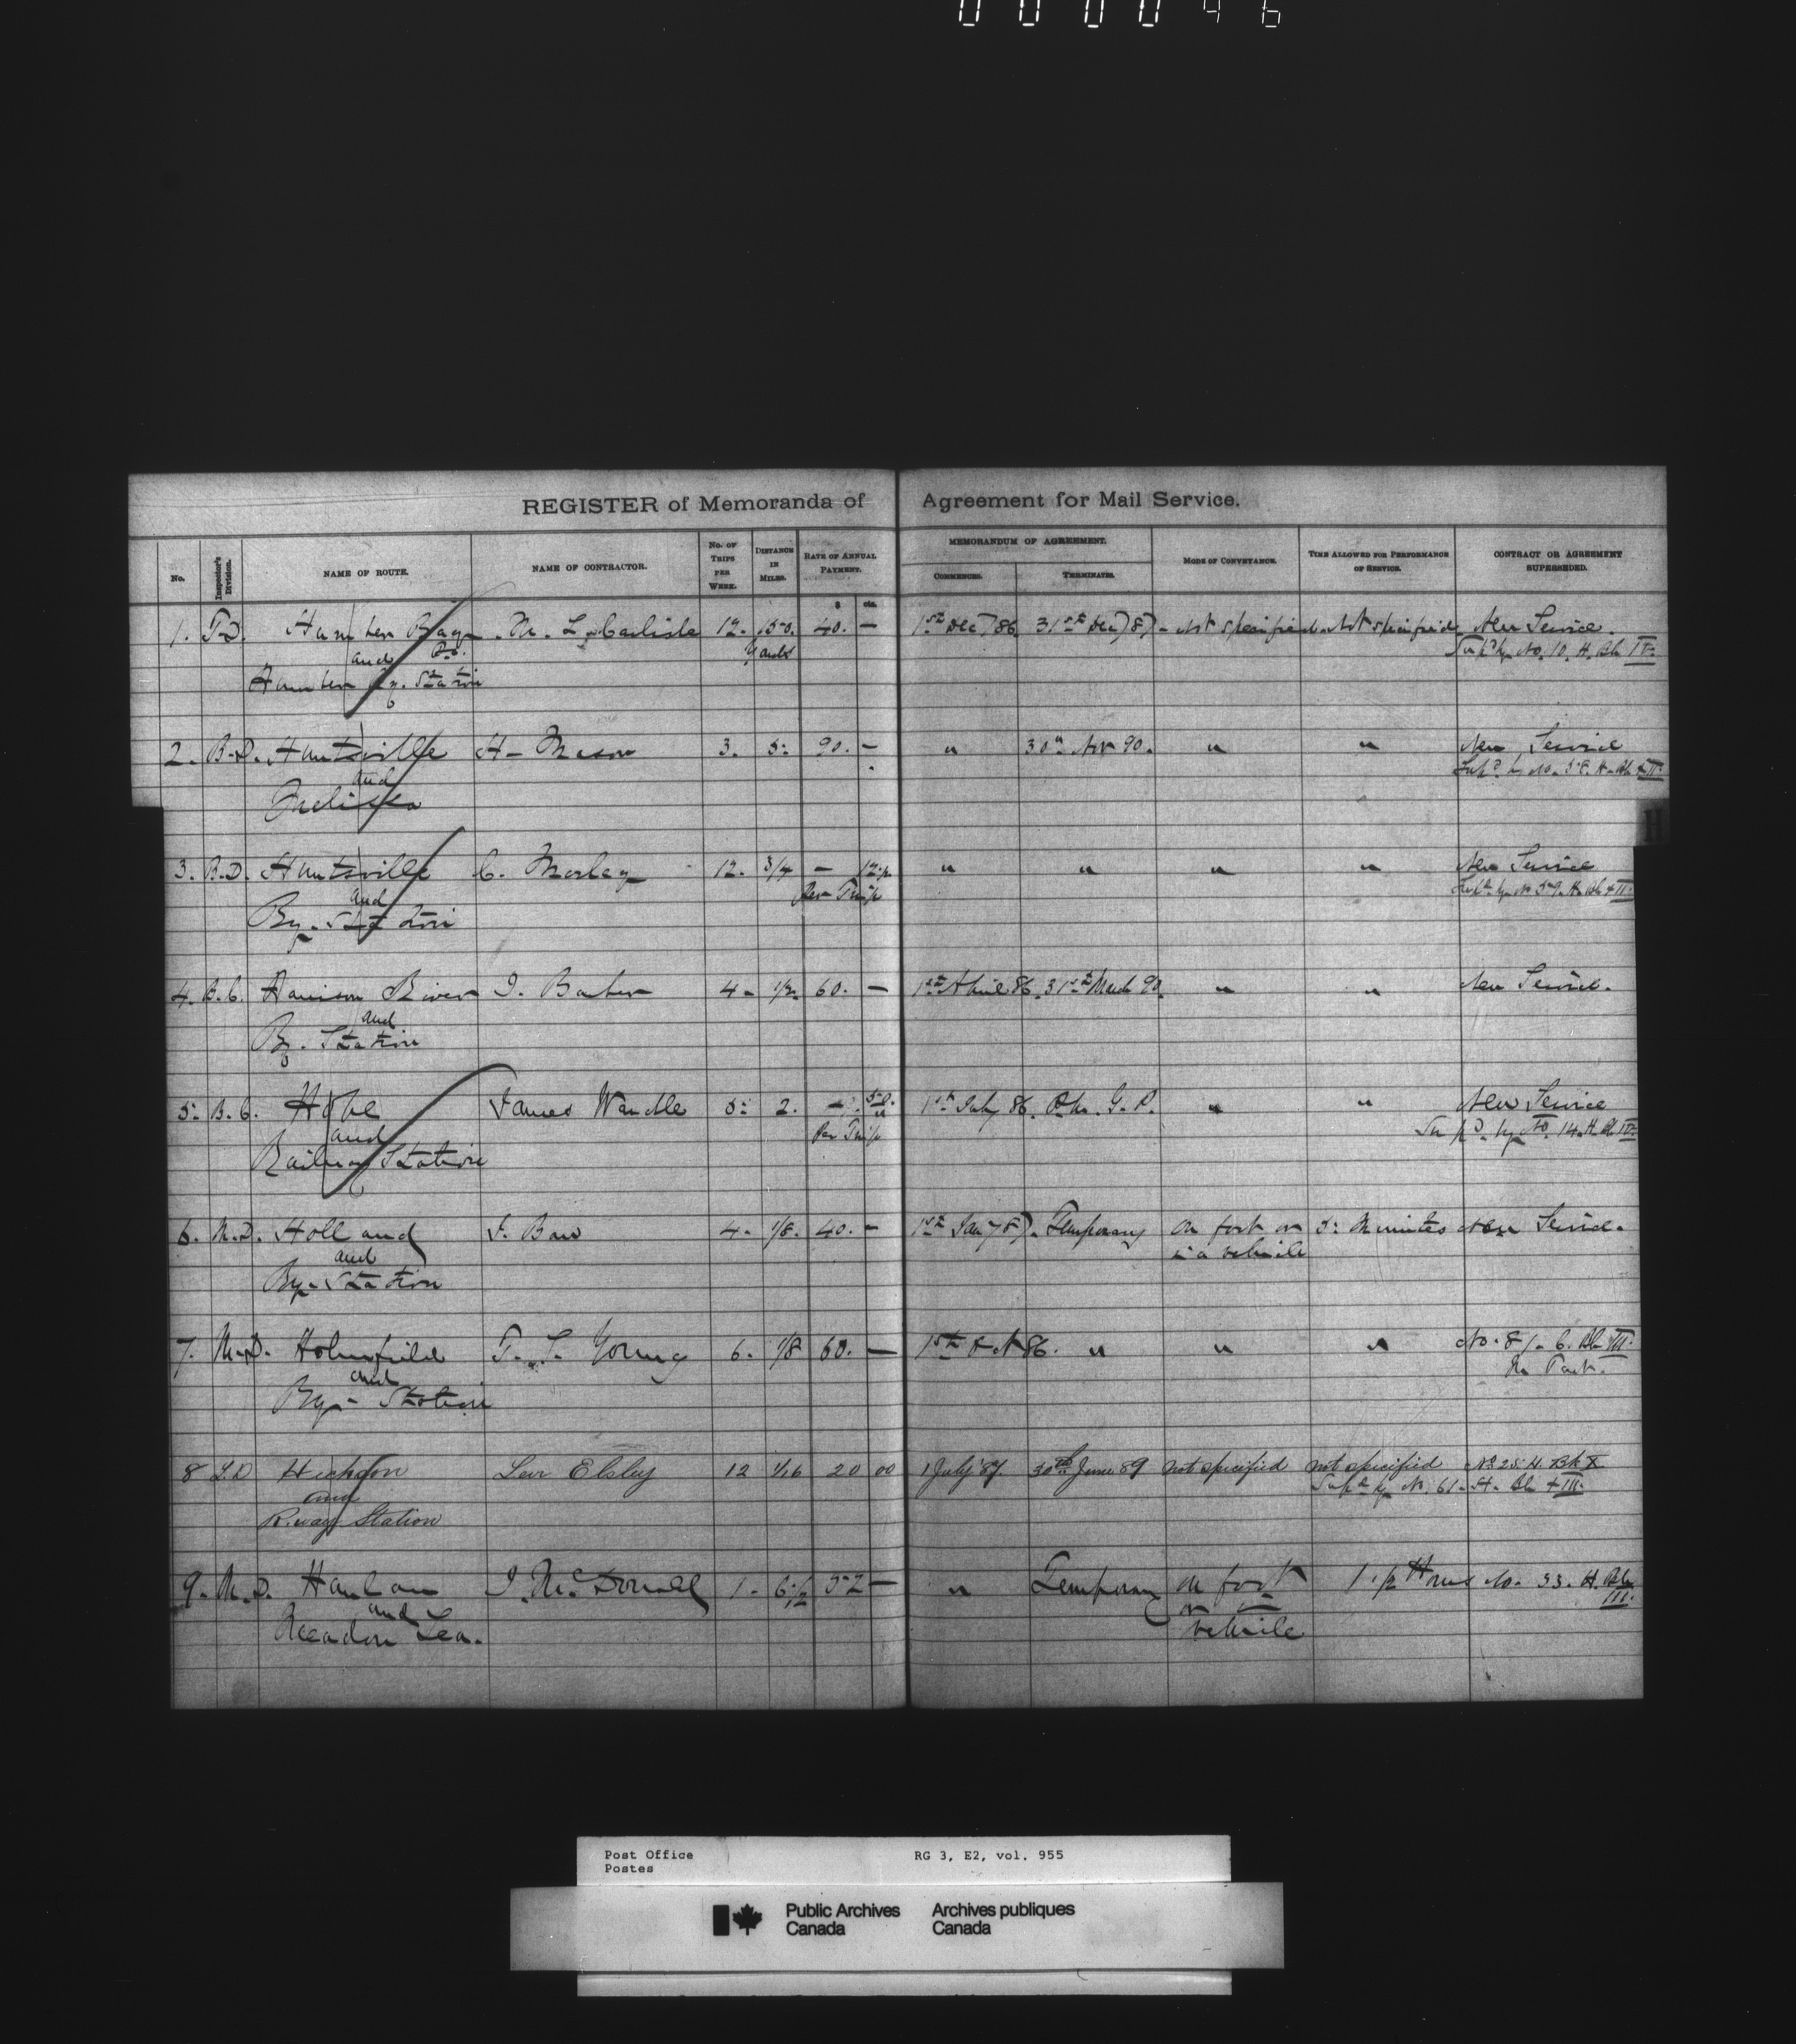 000046
REGISTER of Memoranda of Agreement for Mail Service.
No. Inspector's Division. NAME OF ROUTE. NAME OF CONTRACTOR. No. OF TRIPS PER WEEK. DISTANCE IN MILES. RATE OF ANNUAL PAYMENT. MEMORANDUM OF AGREEMENT. COMMENCES. TERMINATES. MODE OF CONVEYANCE. TIME ALLOWED FOR PERFORMANCE OF SERVICE. CONTRACT OR AGREEMENT SUPERSEDED.
$ cts.
1. T.D. Humber Bay M. L. Carlisle 12. 150. 40. — 1st Dec/86. 31st Dec/87. Not specified. Not specified New Service.
and P.O. Yards Sup'd by No. 10. H. Bk IV.
Humber Ry. Station
2. B.D. Huntsville H. Mason 3. 5. 90. — " 30th Nov 90. " " New Service
and
Melissa
3. B.D. Huntsville C. Morley 12. 3/4 — 12 1/2 " " " " New Service
and Per Trip
Ry. Station
4. B.C. Harrison River 4. 1/2. 60. — 1st April 86. 31st March 90. " " New Service.
and
Ry. Station
5. B.C. Hope James Wardle 5. 2. — 50. 1st July 86. P.M.G.P. " " New Service
and Per Trip Sup'd. by No. 14. H. Bk IV.
Railway Station
6. M.D. Holland 4. 1/8. 40. — 1st Jan/87. Temporary On foot or 5. Minutes New Service.
and in a vehicle
Ry. Station
7. M.D. Holmfield T. S. Young 6. 1/8 60. — 1st Oct 86. " " " No. 81. C. Bk III.
and In Part.
Ry. Station
8 L.D Hickson Levi Elsley 12 1/16 20 00 1 July 87. 30th June 89 not specified not specified No 25. H. Bk X
and Sup'd by No. 61. H. Bk XIII.
R.way Station
9. M.D. Hanlan J. McDonell 1. 6 1/2 52 — " Temporary On foot 1 1/2 Hours No. 33. H. Bk III.
and or
Meadow Lea. vehicle
H
Post Office RG 3, E2, vol. 955
Postes
Public Archives Archives publiques
Canada Canada